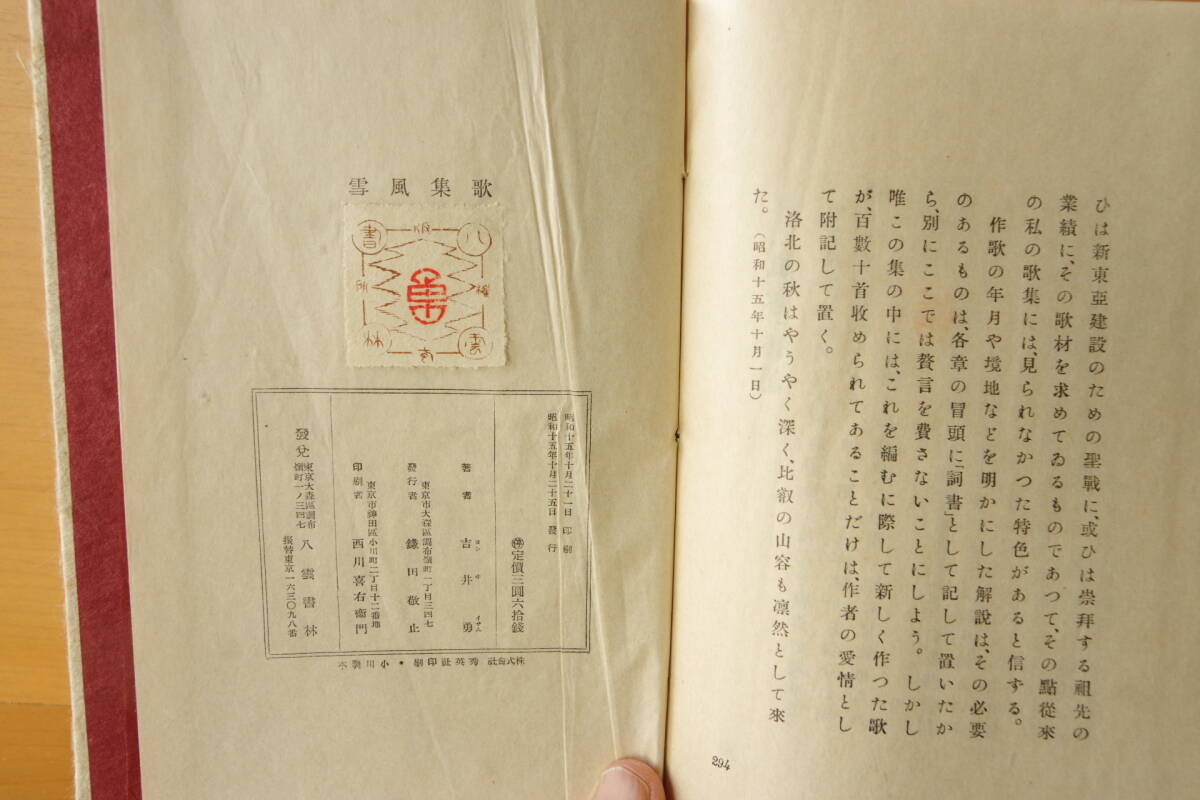 ひは新東亞建設のための聖戰に、或ひは崇拜する祖先の
業績に、その歌材を求めてゐるものであつて、その點從來
の私の歌集には、見られなかつた特色があると信ずる。
作歌の年月や境地などを明かにした解說は、その必要
のあるものは、各章の冒頭に「詞書」として記して置いたか
ら、別にここでは贅言を費さないことにしよう。しかし
唯この集の中には、これを編むに際して新しく作つた歌
が、百數十首收められてあることだけは、作者の愛情とし
て附記して置く。
洛北の秋はやうやく深く、比叡の山容も凛然として來
た。(昭和十五年十月一日)
294
雪風集歌
八雲書林
昭和十五年十月二十一日 印刷
昭和十五年十月二十五日 發行
定價三圓六拾錢
著者 吉井勇
東京市大森區調布嶺町一丁目三四七
發行者 鎌田敬止
東京市神田區小川町二丁目十二番地
印刷者 西川喜右衞門
發兌 東京大森區調布嶺町一ノ三四七 八雲書林
振替東京一六三〇九八番
本製川小・刷印社英秀 社會式株